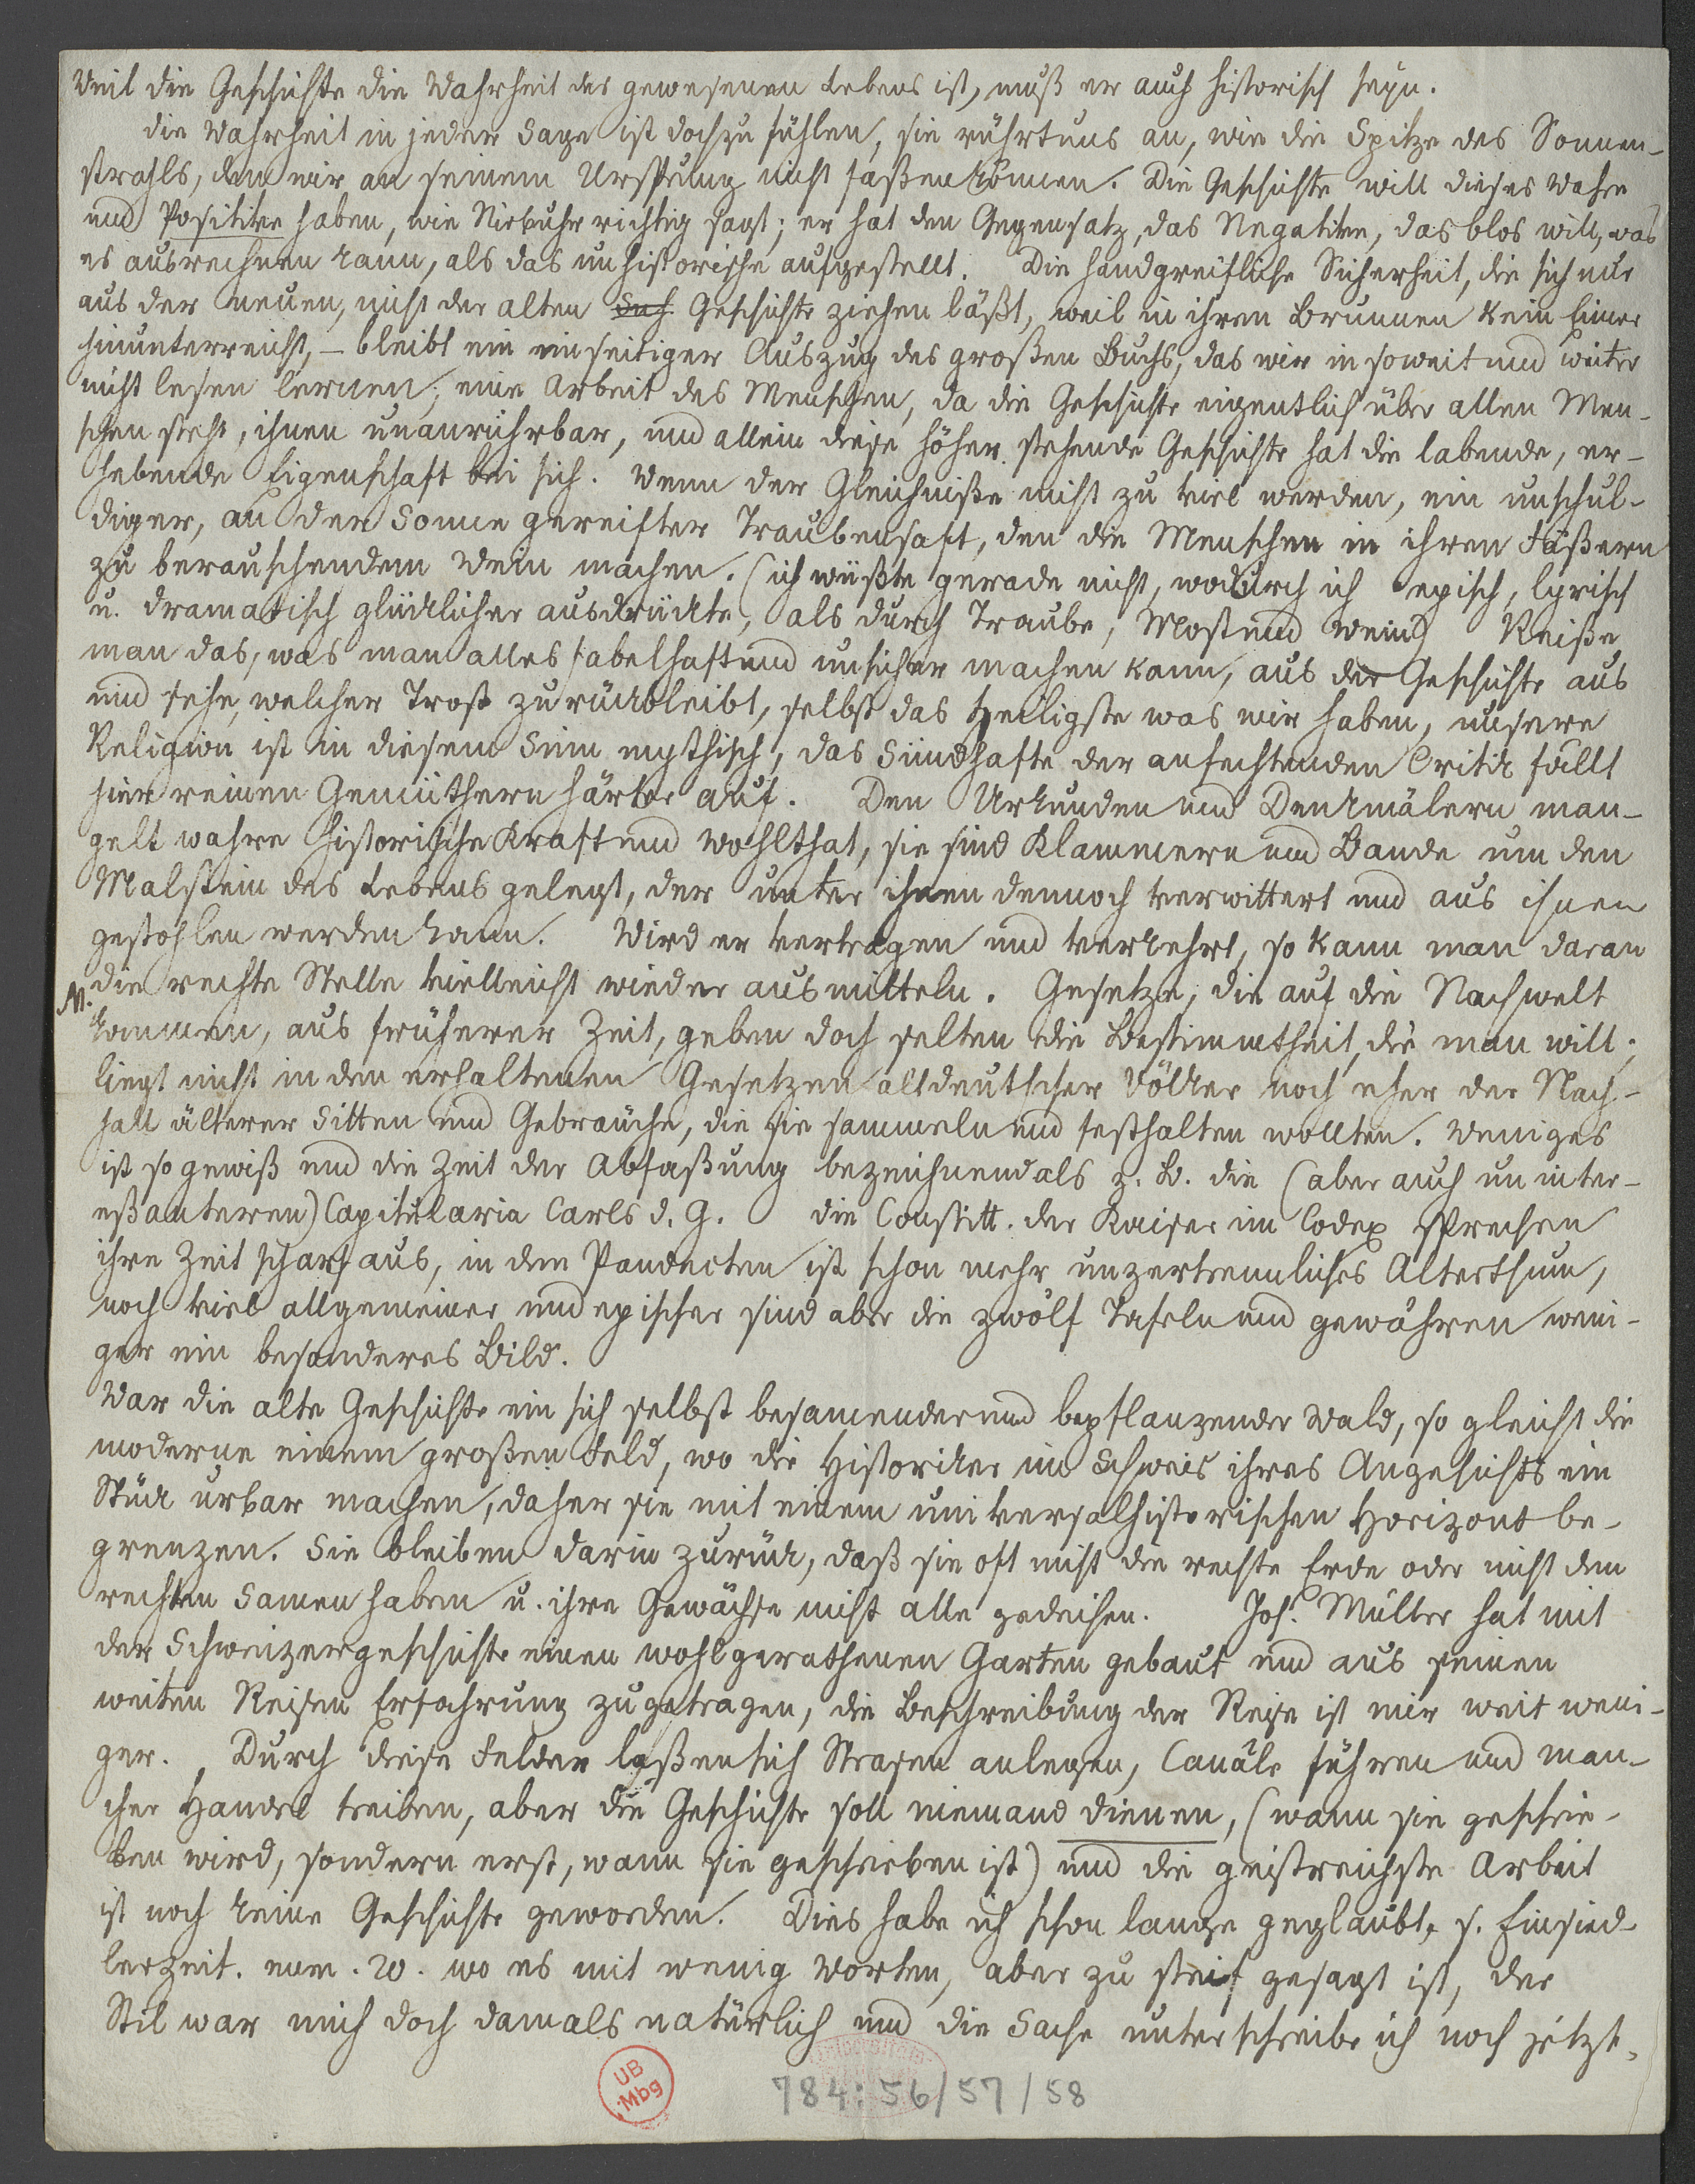 Weil die Geschichte die Wahrheit des gewesenen Lebens ist, muß er auch historisch seyn.
die Wahrheit in jeder Sage ist doch zu fühlen, sie rührt uns an, wie die Spitze des Sonnen-
strahls, den wir an seinem Ursprung nicht faßen können. Die Geschichte will dieses Wahre
und Positive haben, wie Niebuhr richtig sagt; er hat den Gegensatz, das Negative, das blos will, was
es ausrechnen kann, als das unhistorische aufgestellt. Die handgreifliche Sicherheit, die sich nur
aus der neuen, nicht der alten Geschichte ziehen läßt, weil in ihren Brunnen kein Eimer
hinunterreicht, – bleibt ein einseitiger Auszug des großen Buchs, das wir in soweit und weiter
nicht lesen lernen; eine Arbeit des Menschen, da die Geschichte eigentlich über allen Men-
schen steht, ihnen unanrührbar, und allein diese höher stehende Geschichte hat die labende, er-
hebende Eigenschaft bei sich. Wenn der Gleichniße nicht zu viel werden, ein unschul-
diger, an der Sonne gereifter Traubensaft, den die Menschen in ihren Fäßern
zu berauschendem Wein machen. (ich wüßte gerade nicht, wodurch ich episch, lyrisch
u. dramatisch glücklicher ausdrückte, als durch Traube, Most und Wein) Reiße
man das, was man alles fabelhaft und unsicher machen kann, aus der Geschichte aus
und sehe, welcher Trost zurückbleibt, selbst das Heiligste was wir haben, unsere
Religion ist in diesem Sinn mythisch, das Sündhafte der anfechtenden Critik fällt
hier reinen Gemüthern härter auf. Den Urkunden und Denkmälern man-
gelt wahre historische Kraft und Wohlthat, sie sind Klammern und Bande um den
Malstein des Lebens gelegt, der unter ihnen dennoch verwittert und aus ihnen
gestohlen werden kann. Wird er vertragen und verkehrt, so kann man daran
N. die rechte Stelle vielleicht wieder ausmitteln. Gesetze, die auf die Nachwelt
kommen, aus früherer Zeit, geben doch selten die Bestimmtheit, die man will;
liegt nicht in den erhaltenen Gesetzen altdeutscher Völker noch eher der Nach-
hall älterer Sitten und Gebräuche, die sie sammeln und festhalten wollten. Weniges
ist so gewiß und die Zeit der Abfaßung bezeichnend als z. B. die (aber auch uninter-
eßanteren) Capitularia Carls d. G. die Constitt. der Kaiser im Codex sprechen
ihre Zeit scharf aus, in den Pandecten ist schon mehr unzertrennliches Alterthum,
noch viel allgemeiner und epischer sind aber die zwölf Tafeln und gewähren weni-
ger ein besonderes Bild.
War die alte Geschichte ein sich selbst besamender und bepflanzender Wald, so gleicht die
moderne einem großen Feld, wo die Historiker im Schweis ihres Angesichts ein
Stück urbar machen, daher sie mit einem universalhistorischen Horizont be-
grenzen. Sie bleiben darin zurück, daß sie oft nicht die rechte Erde oder nicht den
rechten Samen haben u. ihre Gewächse nicht alle gedeihen. Joh. Müller hat mit
der Schweizergeschichte einen wohlgerathenen Garten gebaut und aus seinen
weiten Reisen Erfahrung zugetragen, die Beschreibung der Reise ist mir weit weni-
ger. Durch diese Felder laßen sich Strasen anlegen, Canäle führen und man-
cher Handel treiben, aber die Geschichte soll niemand dienen, (wann sie geschrie-
ben wird, sondern erst, wann sie geschrieben ist) und die geistreichste Arbeit
ist noch keine Geschichte geworden. Dies habe ich schon lange geglaubt, s. Einsied-
lerzeit. num. 20. wo es mit wenig Worten, aber zu steif gesagt ist, der
Stil war mich doch damals natürlich und die Sache unterschreibe ich noch jetzt,
UB
Mbg
784:56/57/58